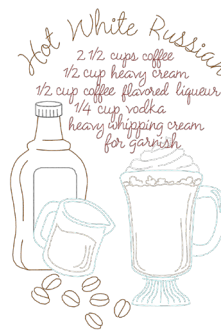 Hot White Russian
2 1/2 cups coffee
1/2 cup heavy cream
1/2 cup coffee flavored liqueur
1/4 cup vodka
heavy whipping cream
for garnish